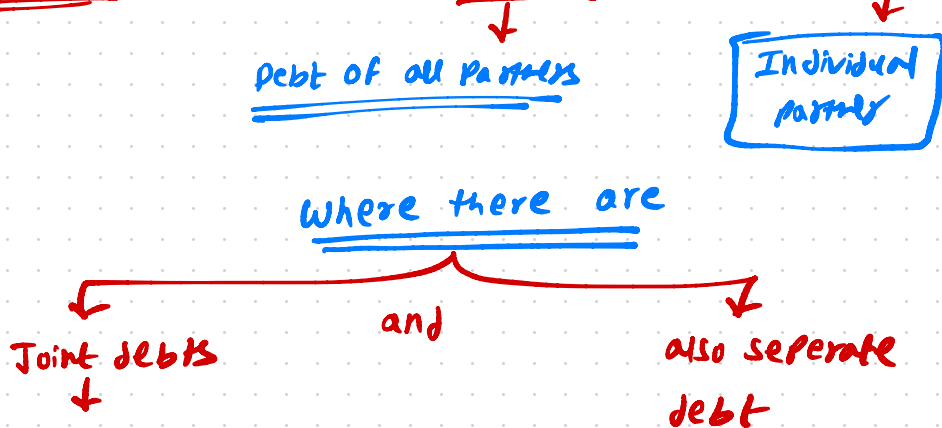 Debt of all Partners
Individual
partner
Where there are
and
Joint debts
also seperate
debt